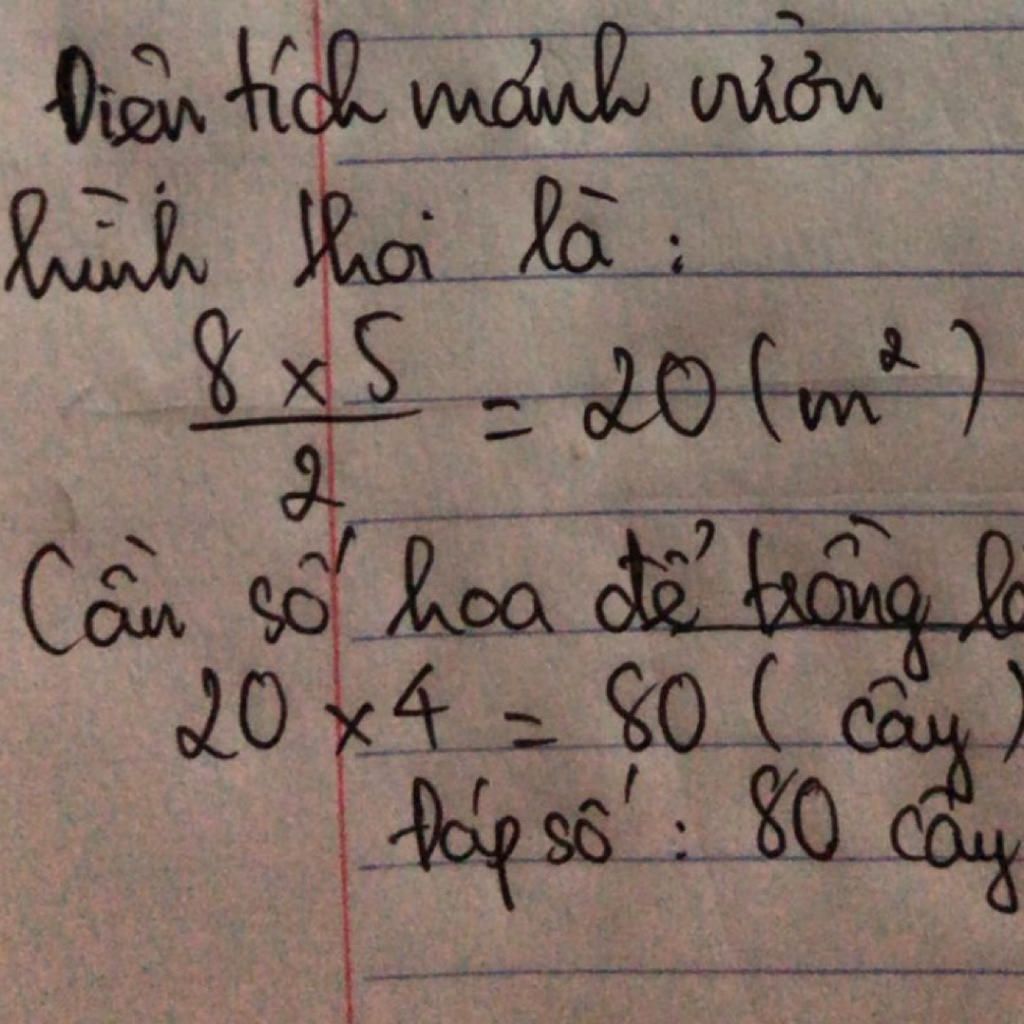 Diện tích mảnh vườn
hình thoi là :
8 x 5
2
= 20 (m²)
Cần số hoa để trồng là
20 x 4 = 80 ( cây )
Đáp số : 80 cây